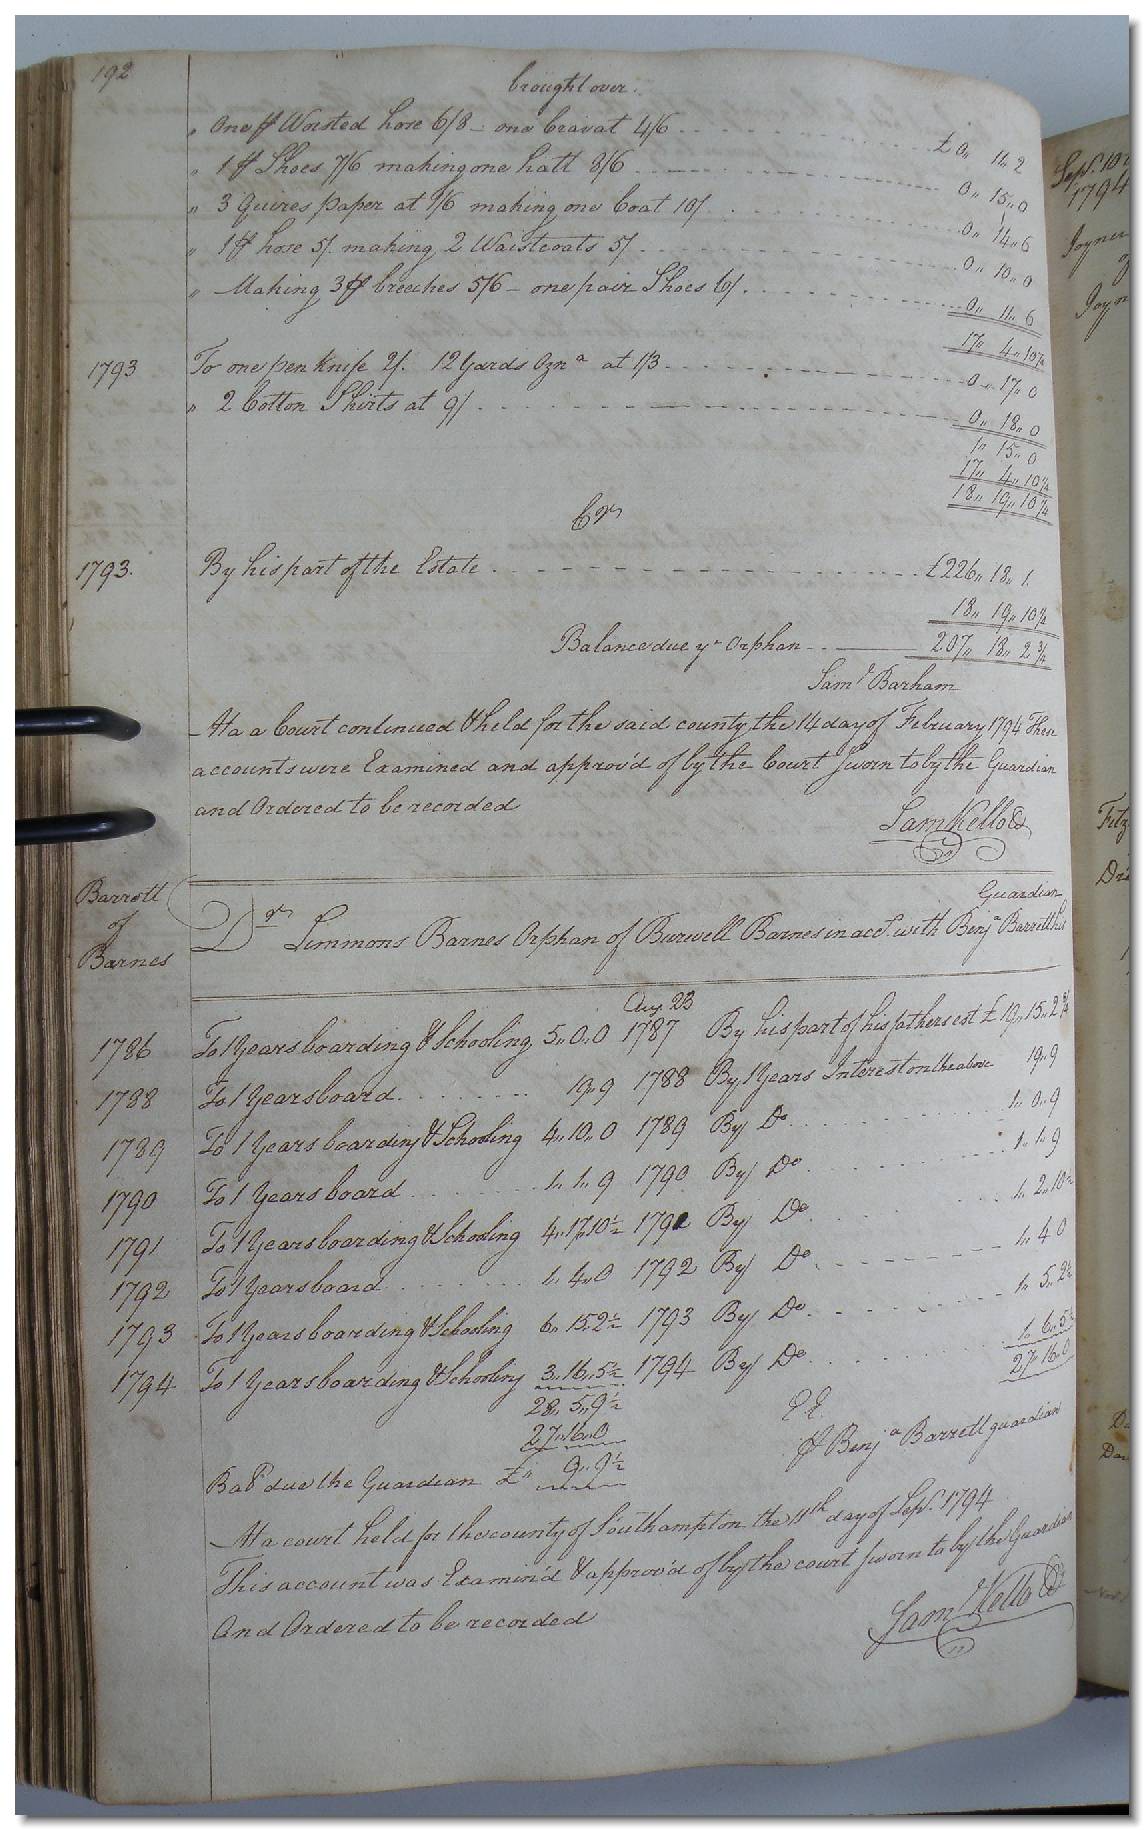 192
brought over.
„ One pr Worsted hose 6/8 – one Cravat 4/6 £0„ 11„ 2
„ 1 pr Shoes 7/6 making one hatt 8/6 0„ 15„ 0
„ 3 Quires paper at 1/6 making one Coat 10/ 0„ 14„ 6
„ 1 pr hose 5/. making 2 Waistcoats 5/ 0„ 10„ 0
„ Making 3 pr breeches 5/6 – one pair Shoes 6/. 0„ 11„ 6
17„ 4„ 10¼
1793 To one pen Knife 2/. 12 Yards Ozna at 1/3 0„ 17„ 0
„ 2 Cotton Shirts at 9/ 0„ 18„ 0
1„ 15„ 0
17„ 4„ 10¼
18„ 19„ 10¼
Cr
1793. By his part of the Estate £226„ 18„ 1.
18„ 19„ 10¼
Balance due ye Orphan 207„ 18„ 2¾
Saml Barham
At a Court continued & held for the said county the 14 day of February 1794 These
accounts were Examined and approv'd of by the Court Sworn to by the Guardian
and Ordered to be recorded
Sam Kello Cl
Barrett
of
Barnes
Guardian
Dr Simmons Barnes Orphan of Burwell Barnes in acct. with Benja Barrett his
Aug. 23
1786 To 1 Years boarding & Schooling 5„ 0„ 0 1787 By his part of his fathers est £19„ 15„ 2¾
1788 To 1 Years board 19„ 9 1788 By 1 Years Interest on the above 19„ 9
1789 To 1 Years boarding & Schooling 4„ 10„ 0 1789 By Do 1„ 0„ 9
1790 To 1 Years board 1„ 1„ 9 1790 By Do 1„ 1„ 9
1791 To 1 Years boarding & Schooling 4„ 17„ 10½ 1791 By Do 1„ 2„ 10½
1792 To 1 Years board 1„ 4„ 0 1792 By Do 1„ 4 0
1793 To 1 Years boarding & Schooling 6„ 15„ 2½ 1793 By Do 1„ 5„ 2½
1794 To 1 Years boarding & Schooling 3„ 16„ 5½ 1794 By Do 1„ 6„ 5½
28„ 5„ 9½ 27„ 16„ 0
27„ 16„ 0 E E.
pr Benja Barrett guardian
Bale due the Guardian £„ 9„ 9½
At a court held for the county of Southampton the 11th day of Sepr. 1794
This account was Examin'd & approv'd of by the court Sworn to by the Guardian
And Ordered to be recorded
Saml Kello Cl
Sepr. 10
1794
Joyner
of
Joyn
Fitz